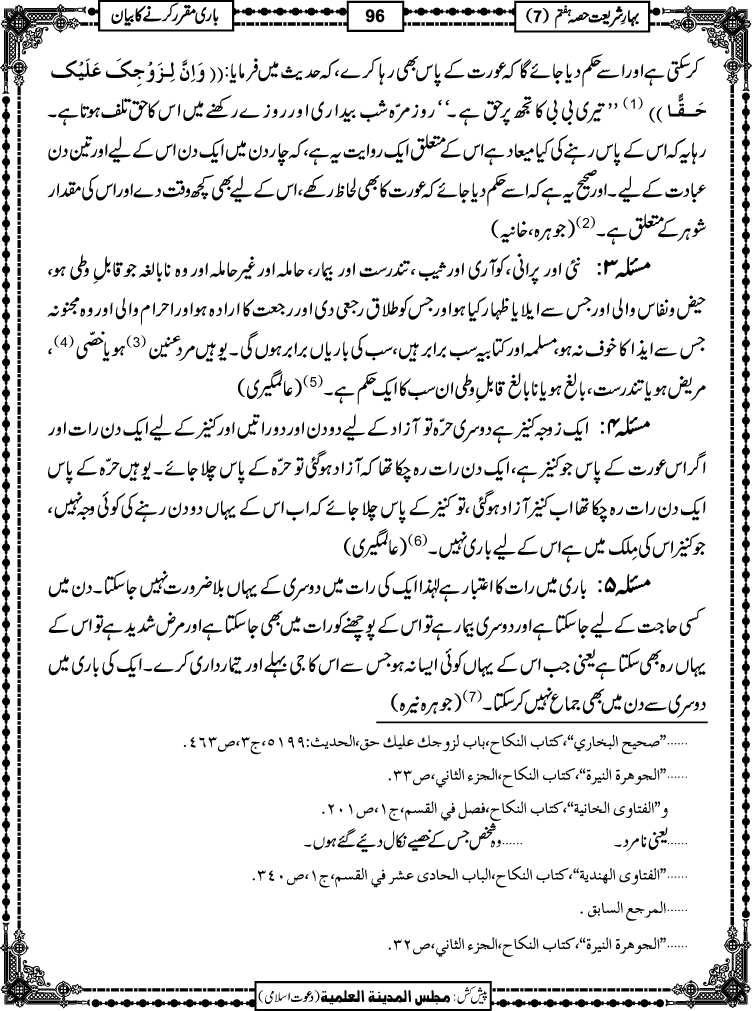 بہارِ شریعت حصہ ہفتم (7)
96
باری مقرر کرنے کا بیان
کرسکتی ہے اور اسے حکم دیا جائے گا کہ عورت کے پاس بھی رہا کرے، کہ حدیث میں فرمایا: (( وَاِنَّ لِزَوْجِکَ عَلَیْکَ
حَقًّا )) (1) ’’تیری بی بی کا تجھ پر حق ہے۔‘‘ روزمرّہ شب بیداری اور روزے رکھنے میں اس کا حق تلف ہوتا ہے۔
رہا یہ کہ اس کے پاس رہنے کی کیا میعاد ہے اس کے متعلق ایک روایت یہ ہے، کہ چار دن میں ایک دن اس کے لیے اور تین دن
عبادت کے لیے۔ اور صحیح یہ ہے کہ اسے حکم دیا جائے کہ عورت کا بھی لحاظ رکھے، اس کے لیے بھی کچھ وقت دے اور اس کی مقدار
شوہر کے متعلق ہے۔ (2) (جوہرہ، خانیہ)
مسئلہ ۳: نئی اور پرانی، کوآری اور ثیب، تندرست اور بیمار، حاملہ اور غیر حاملہ اور وہ نابالغہ جو قابلِ وطی ہو،
حیض ونفاس والی اور جس سے ایلا یا ظہار کیا ہو اور جس کو طلاق رجعی دی اور رجعت کا ارادہ ہو اور احرام والی اور وہ مجنونہ
جس سے ایذا کا خوف نہ ہو، مسلمہ اور کتابیہ سب برابر ہیں، سب کی باریاں برابر ہوں گی۔ یوہیں مرد عنین (3) ہو یا خصّی (4)،
مریض ہو یا تندرست، بالغ ہو یا نابالغ قابلِ وطی ان سب کا ایک حکم ہے۔ (5) (عالمگیری)
مسئلہ ۴: ایک زوجہ کنیز ہے دوسری حرّہ تو آزاد کے لیے دو دن اور دو راتیں اور کنیز کے لیے ایک دن رات اور
اگر اس عورت کے پاس جو کنیز ہے، ایک دن رات رہ چکا تھا کہ آزاد ہوگئی تو حرّہ کے پاس چلا جائے۔ یوہیں حرّہ کے پاس
ایک دن رات رہ چکا تھا اب کنیز آزاد ہوگئی، تو کنیز کے پاس چلا جائے کہ اب اس کے یہاں دو دن رہنے کی کوئی وجہ نہیں،
جو کنیز اس کی مِلک میں ہے اس کے لیے باری نہیں۔ (6) (عالمگیری)
مسئلہ ۵: باری میں رات کا اعتبار ہے لہٰذا ایک کی رات میں دوسری کے یہاں بلا ضرورت نہیں جاسکتا۔ دن میں
کسی حاجت کے لیے جاسکتا ہے اور دوسری بیمار ہے تو اس کے پوچھنے کو رات میں بھی جاسکتا ہے اور مرض شدید ہے تو اس کے
یہاں رہ بھی سکتا ہے یعنی جب اس کے یہاں کوئی ایسا نہ ہو جس سے اس کا جی بہلے اور تیمارداری کرے۔ ایک کی باری میں
دوسری سے دن میں بھی جماع نہیں کرسکتا۔ (7) (جوہرہ نیرہ)
......”صحیح البخاري“، کتاب النکاح، باب لزوجك علیك حق، الحدیث: ۵۱۹۹، ج۳، ص۴۶۳.
......”الجوهرة النيرة“، کتاب النکاح، الجزء الثاني، ص۳۳.
و”الفتاوى الخانية“، کتاب النکاح، فصل في القسم، ج۱، ص۲۰۱.
......یعنی نامرد۔ ......وہ شخص جس کے خصیے نکال دیئے گئے ہوں۔
......”الفتاوى الهندية“، کتاب النکاح، الباب الحادی عشر في القسم، ج۱، ص۳۴۰.
......المرجع السابق .
......”الجوهرة النيرة“، کتاب النکاح، الجزء الثاني، ص۳۲.
پیش کش: مجلس المدینة العلمیة (دعوت اسلامی)